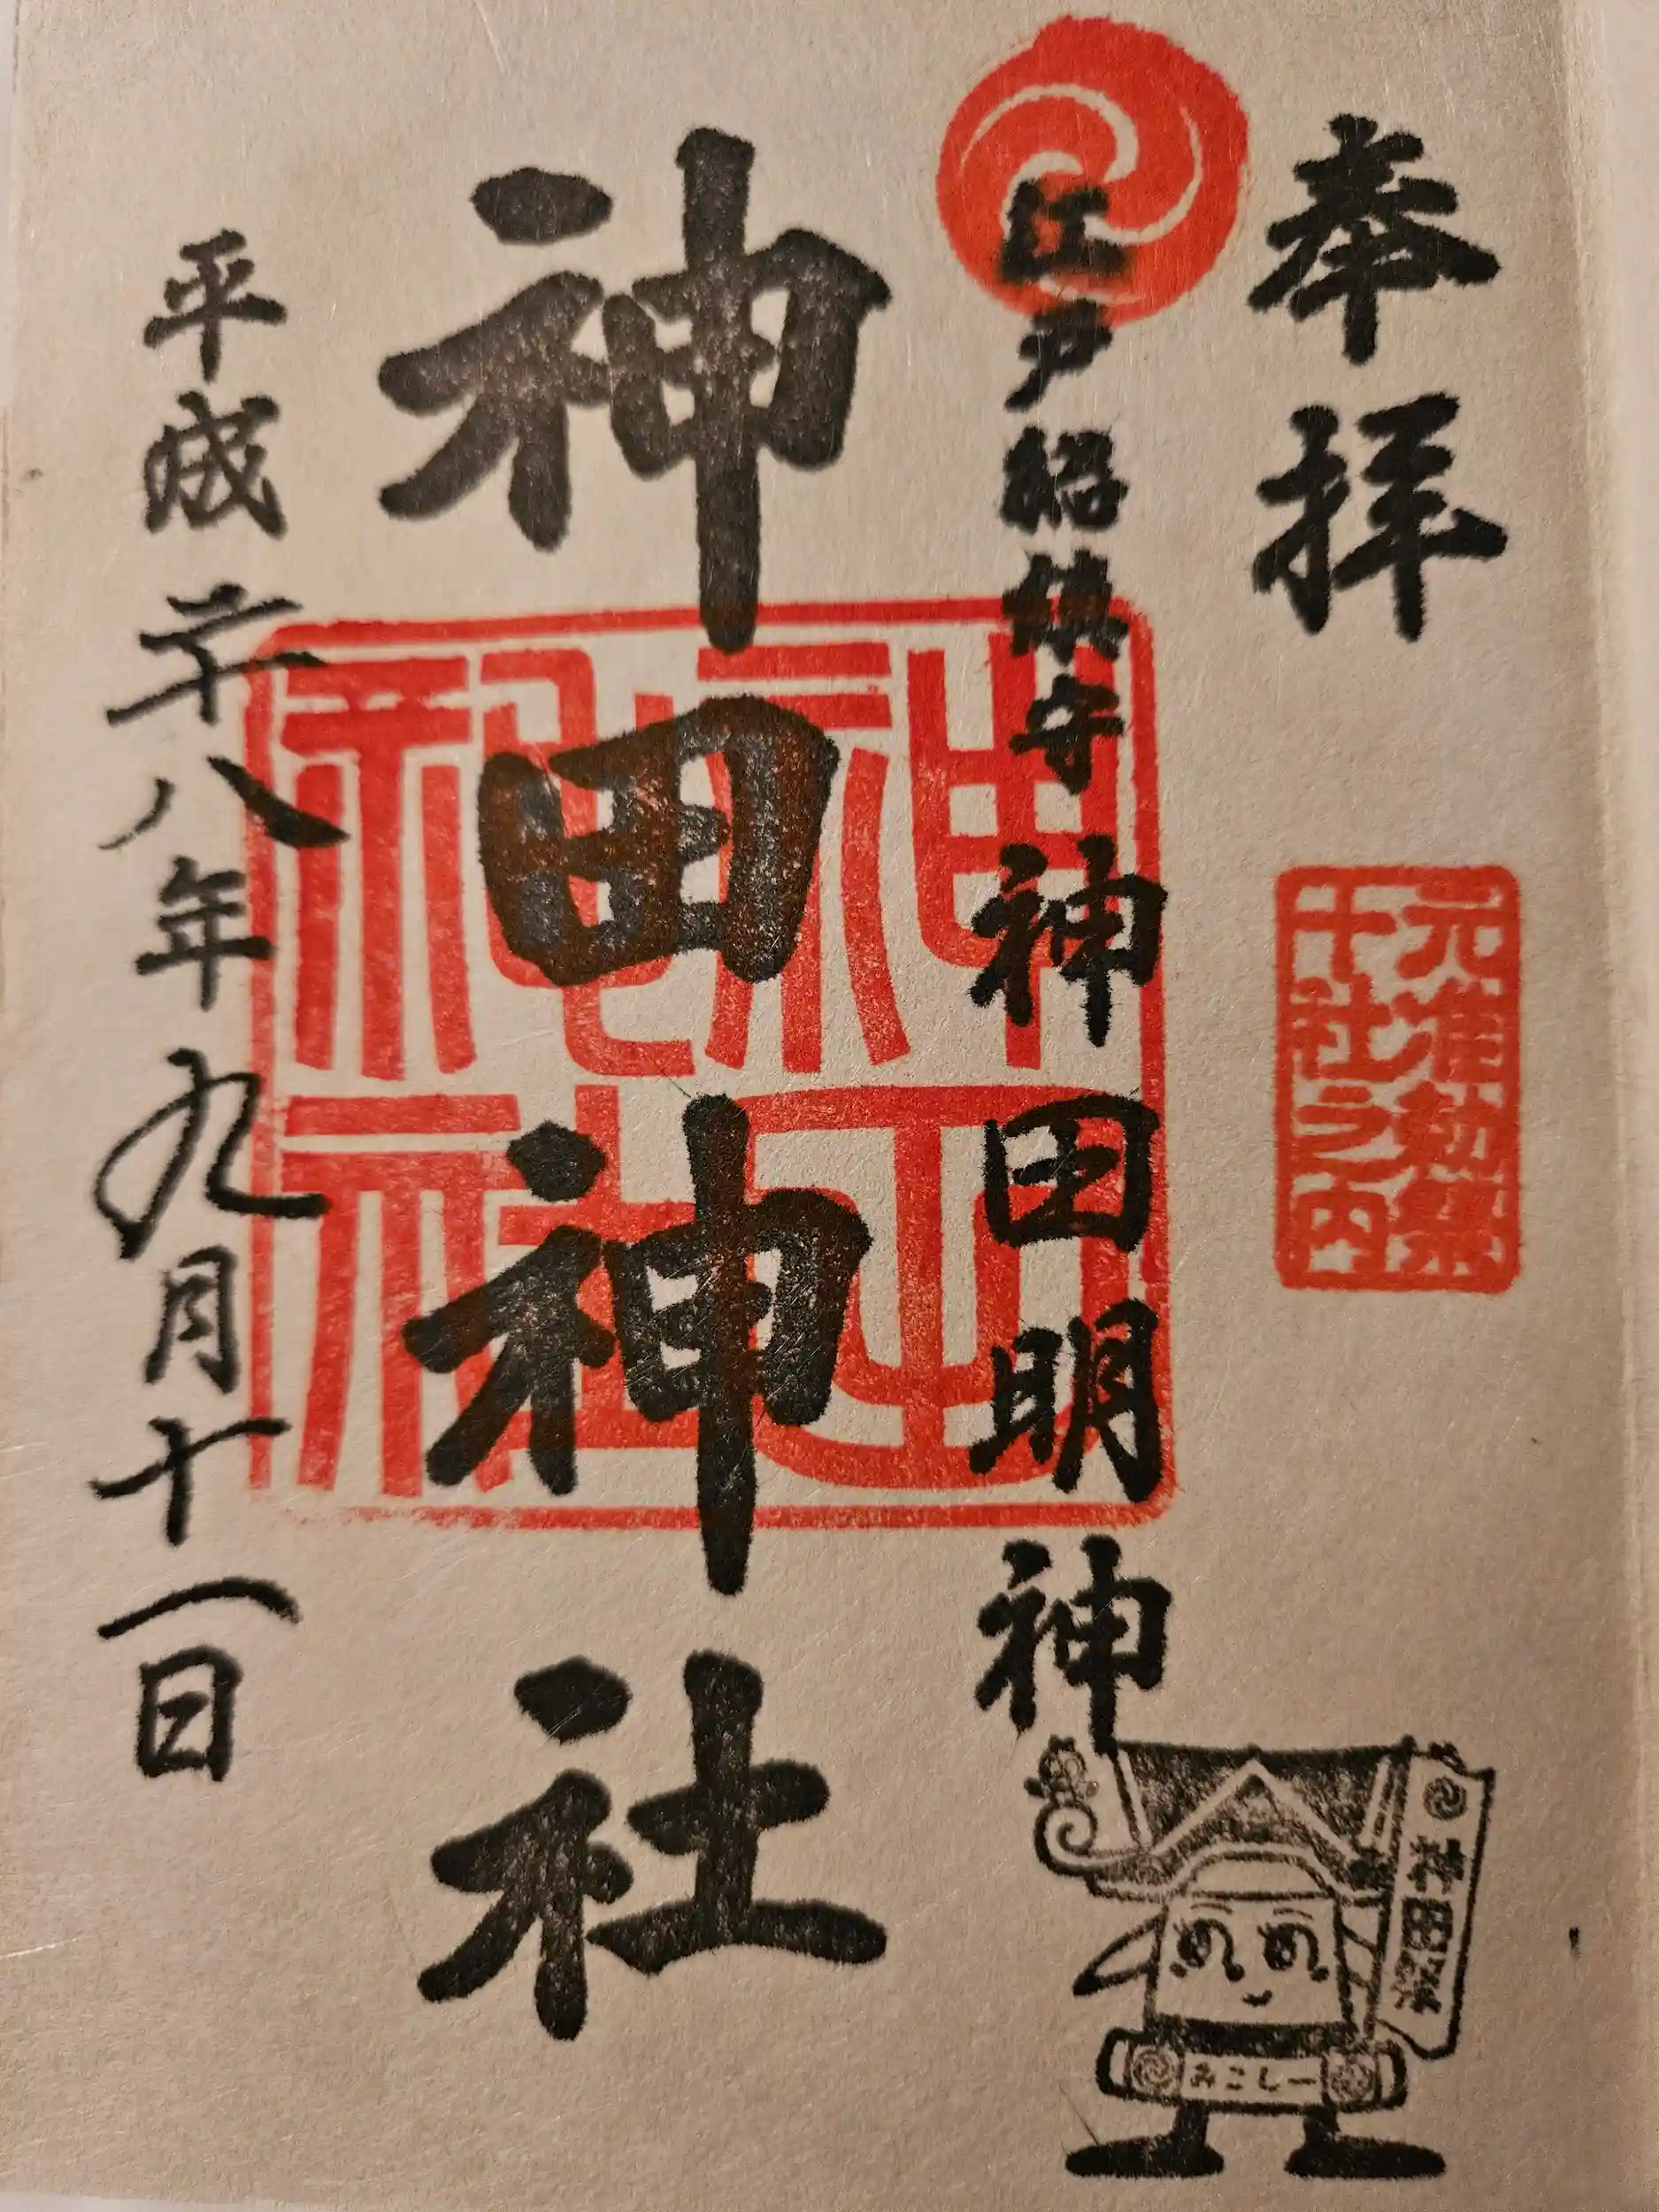 奉拝
元准勅祭
十社之内
江戸総鎮守
神田明神
神田神社
神田祭
みこしー
平成二十八年九月十一日